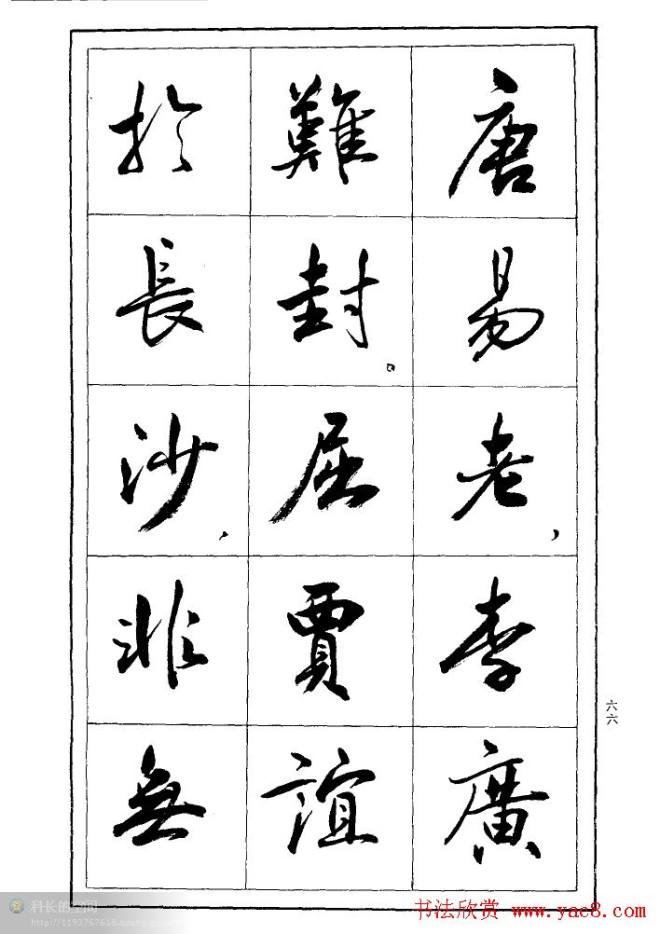 唐易老，李廣
難封。屈賈誼
於長沙，非無
六六
科长的空间
书法欣赏 www.yac8.com